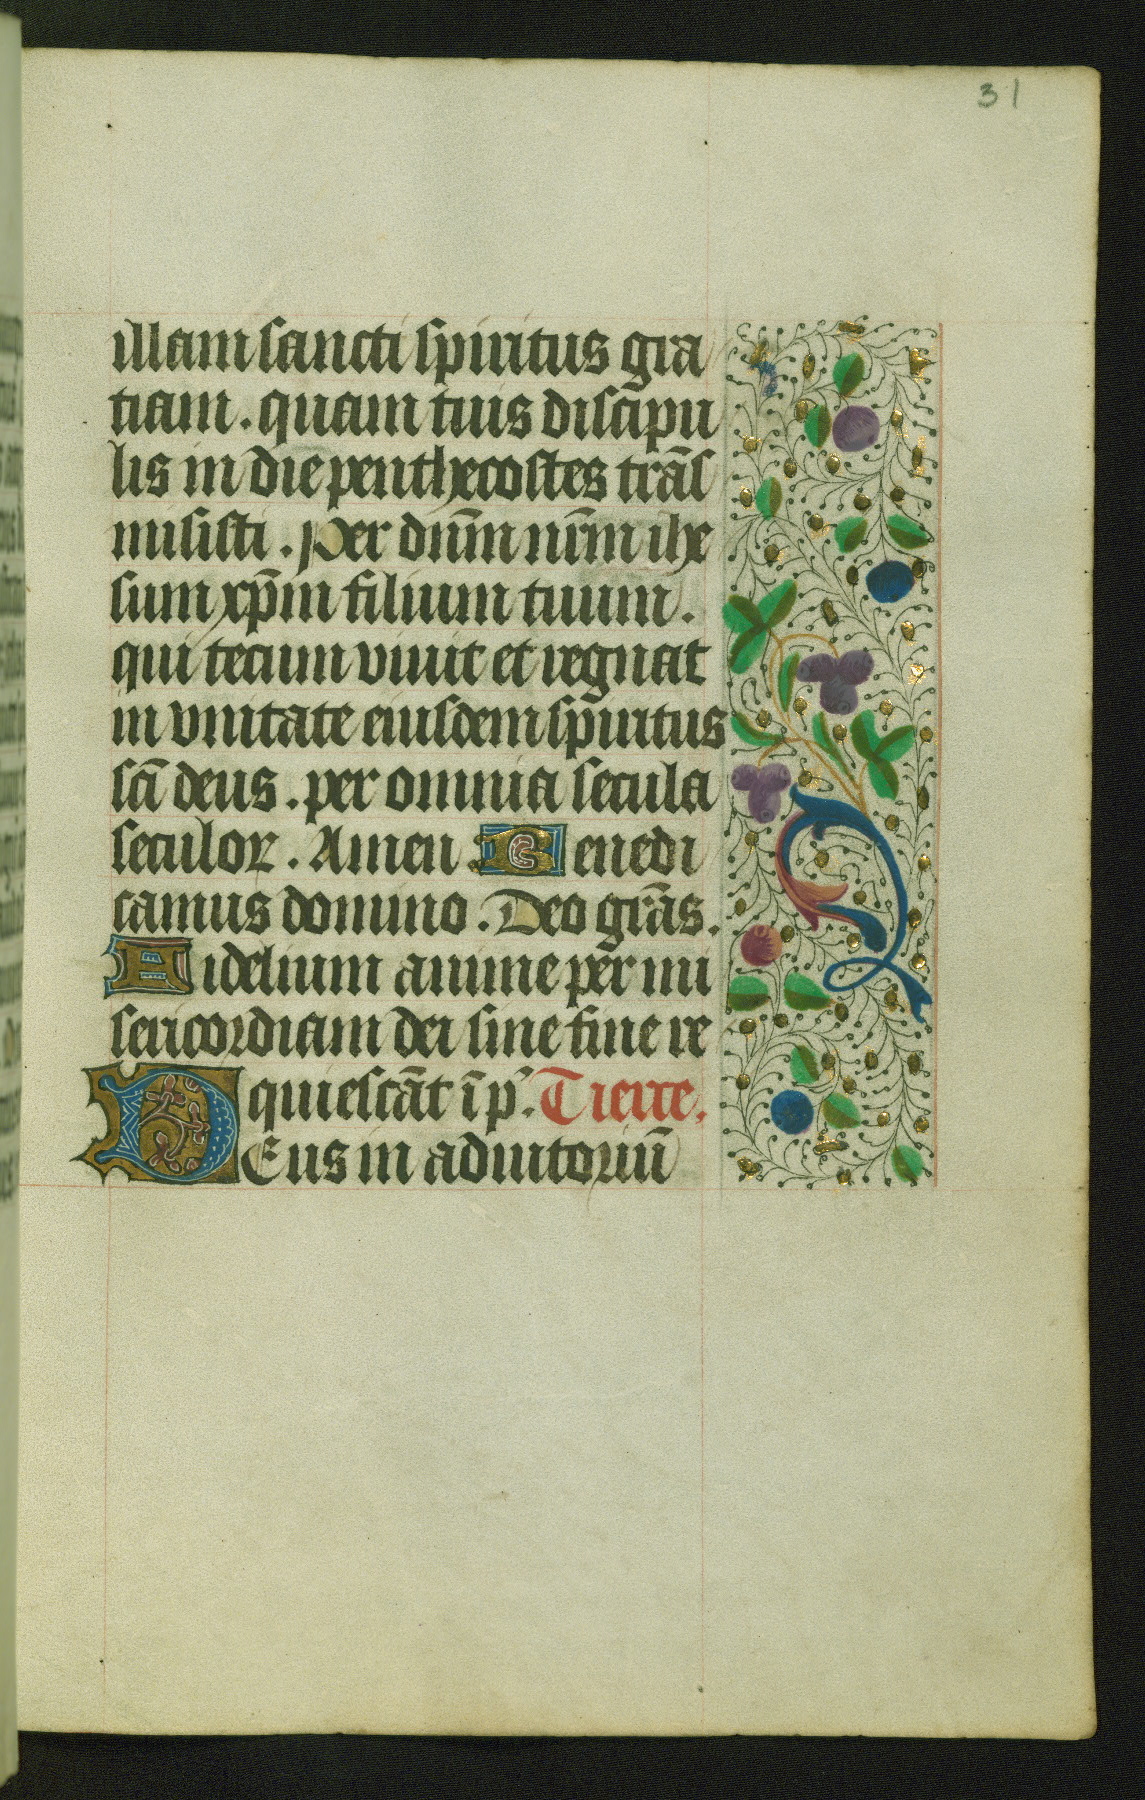 31
illam sancti spiritus gra
tiam. quam tuis discipu
lis in die penthecostes trās
misisti. Per dn̄m nr̄m ihe
sum xp̄m filium tuum.
qui tecum viuit et regnat
in vnitate eiusdem sp̄iritus
scī deus. per omnia secula
seculoꝝ. Amen Benedi
camus domino. Deo grās.
Fidelium anime per mi
sericordiam dei sine fine re
quiescāt ī p'. Tierce.
DEus in adiutoriū